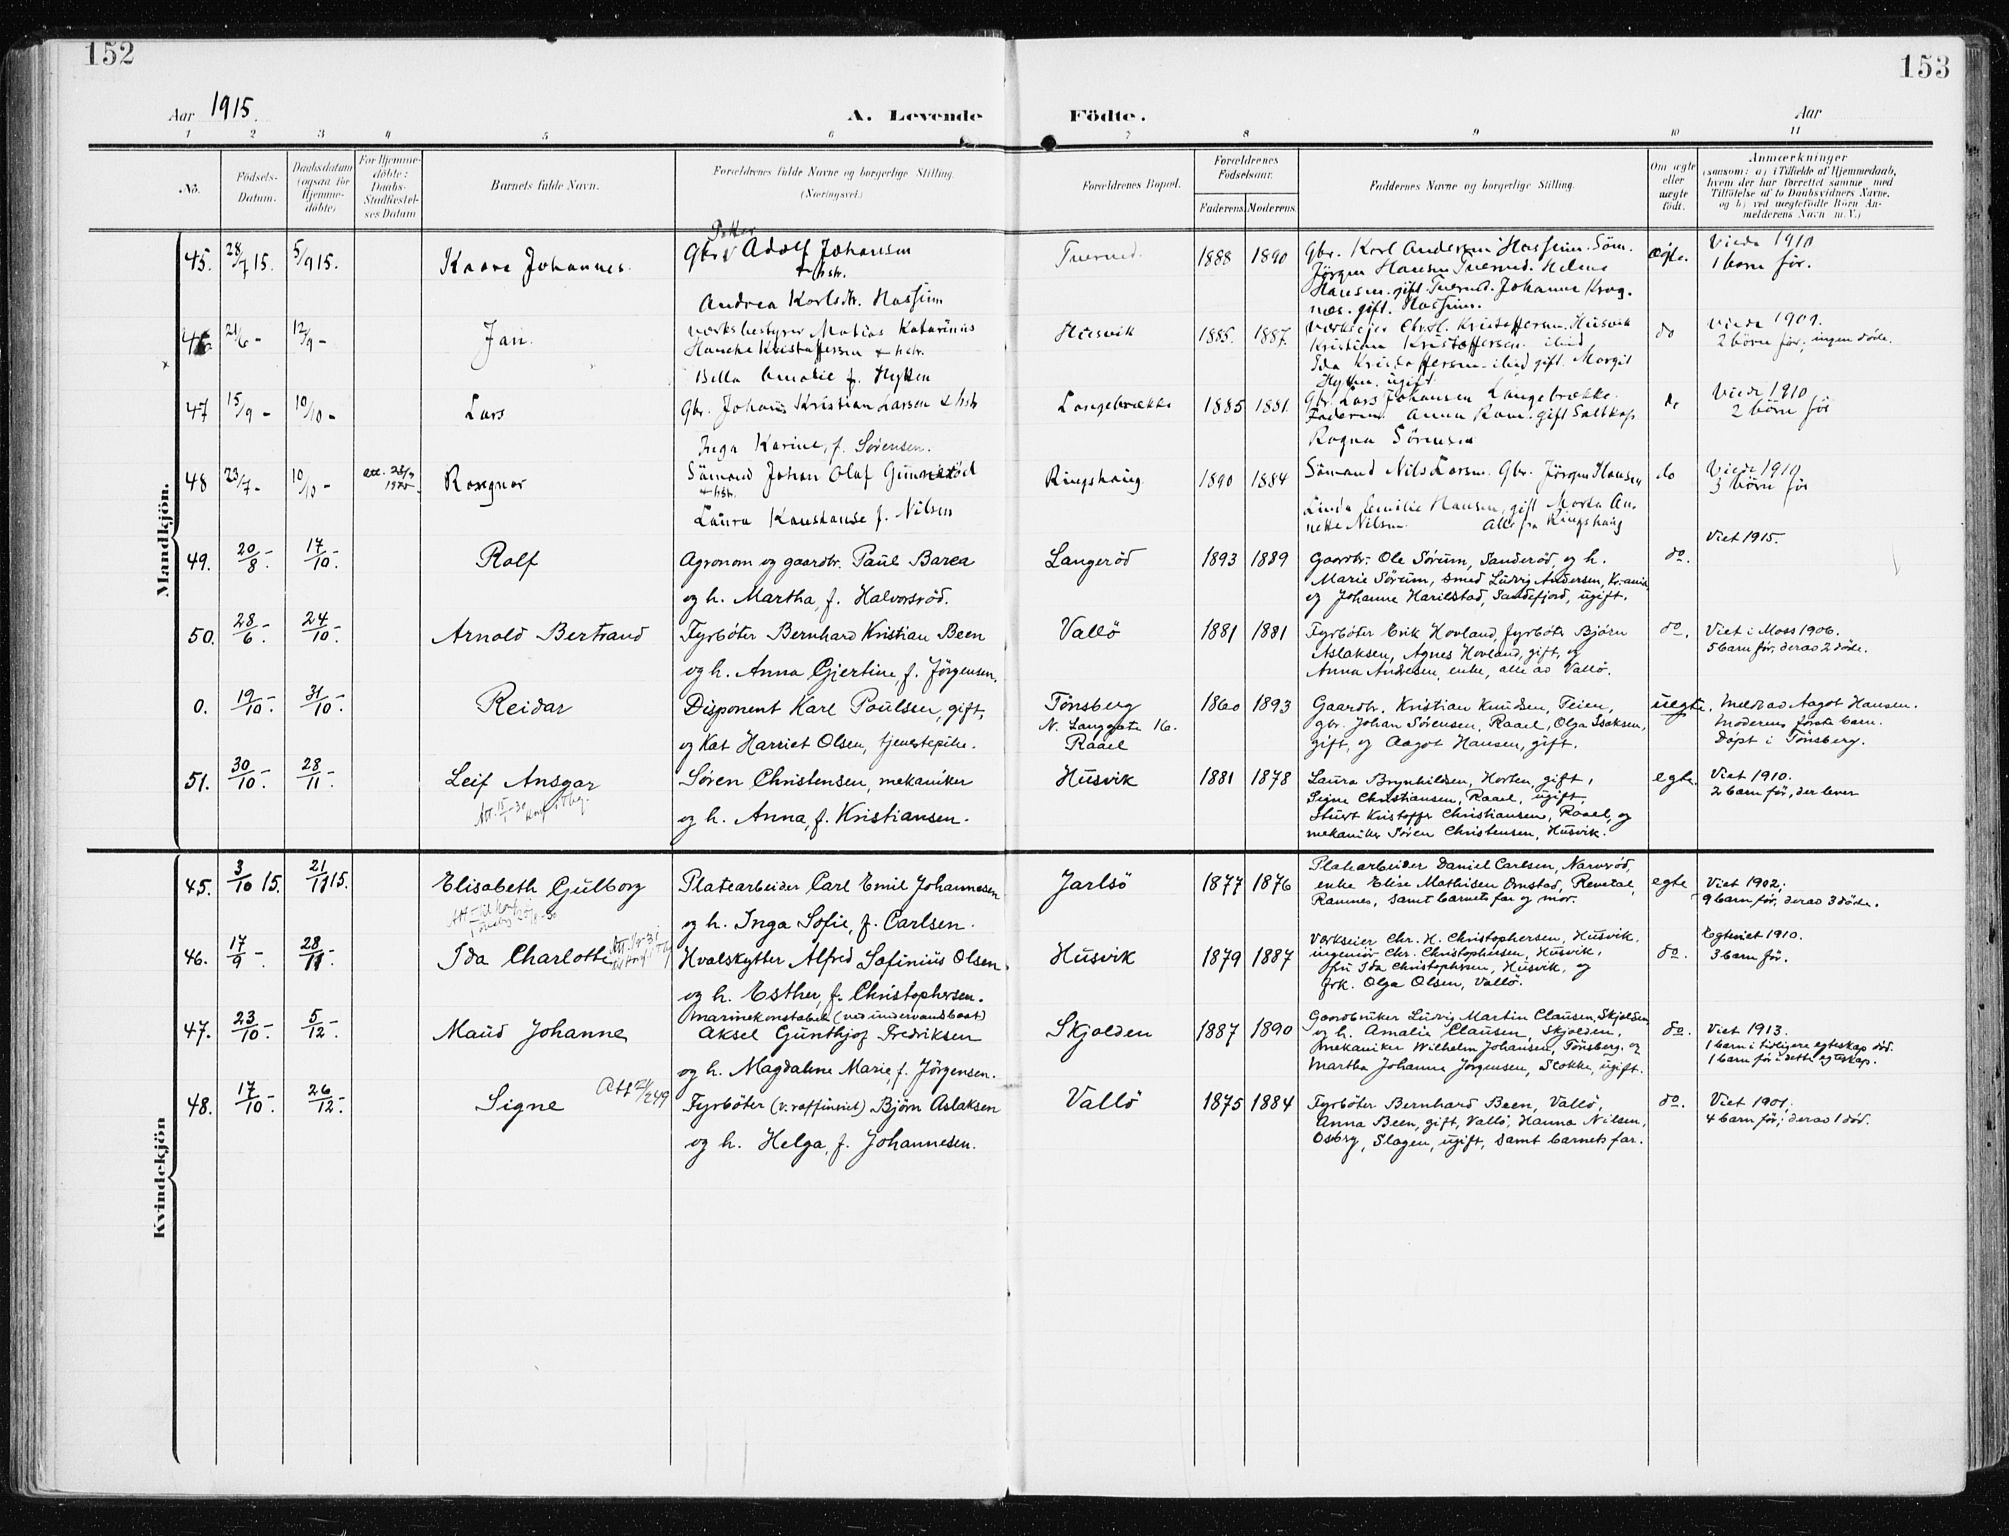 152
153
Aar 1915.
A. Levende Födte.
Aar
1 2 3 4 5 6 7 8 9 10 11
No.
Födsels-Datum.
Daabsdatum (ogsaa for Hjemmedöbte)
For Hjemmedöbte: Daabs-Stadfæstelses Datum
Barnets fulde Navn.
Forældrenes fulde Navne og borgerlige Stilling. (Næringsvei)
Forældrenes Bopæl.
Forældrenes Födselsaar.
Faderens Moderens
Faddernes Navne og borgerlige Stilling.
Om ægte eller uægte födt.
Anmærkninger
(saasom: a) i Tilfælde af Hjemmedaab,
hvem der har forrettet samme med
Tilföielse af to Daabsvidners Navne.
og b) ved uægtefödte Börn An-
melderens Navn m. V.)
Mandkjön.
45. 28/7 15. 5/9 15. Kaare Johannes.
Gbr Adolf Johansen
+ hstr.
Andrea Karlsdtr. Hassum
1888 1890
Gbr. Karl Andersen Hassum. Söm.
Jörgen Hansen
Hansen. gift. Johanne
gift. Hassum.
ægte.
Viede 1910
1 barn för.
46 21/6 - 12/9 - Jan.
Verksbestyrer Matias Katarinus
Kristoffersen + hstr.
Bella Amalie f. Hytten
Husvik
1885. 1887.
Verkseier Chr. H. Kristoffersen. Husvik
Kristian Kristoffersen ibid
Ida Kristoffersen ibid gift. Margit
Hytten. ugift.
do
Viede 1909.
2 börn för, ingen döde.
47 15/9 - 10/10 - Lars
Gbr. Johan Kristian Larsen & hstr
Inga Karine, f. Sörensen.
Langebrække
1885 1881.
Gbr. Lars Johansen Langebrække.
Faderen. Anna gift Saltkop
Ragna Sörensen
do
Viede 1910
2 börn för
48 23/7 - 10/10 - Ragnar
Sömand Johan Olaf Gunneröd
+ hstr.
Laura Konstanse f. Nilsen
Ringshaug
1890 1884
Sömand Nils Larsen. Gbr. Jörgen Hansen
Linda Emilie Hansen, gift Marta An-
nette Nilsen. Alle fra Ringshaug
do
Viede 1910
3 börn för
49. 20/8 - 17/10 - Rolf
Agronom og gaardbr. Paul Barea
og h. Martha, f. Halvorsröd.
Langeröd
1893 1889
Gaardbr. Ole Sörum, Sanderöd, og h.
Marie Sörum, smed Ludvig Andersen, Kr.ania
og Johanne Harilstad, Sandefjord, ugift.
do.
Viet 1915.
50. 28/6 - 24/10 - Arnold Bertrand
Fyrböter Bernhard Kristian Been
og h. Anna Gjertine, f. Jörgensen.
Vallö
1881 1881
Fyrböter Erik Hovland, fyrböter Björn
Aslaksen, Agnes Hovland, gift, og
Anna Andresen, enke, alle av Vallö.
do.
Viet i Moss 1906.
5 barn för, derav 2 döde.
0. 19/10 - 31/10 - Reidar
Disponent Karl Poulsen, gift,
og Kat Harriet Olsen, tjenestepike.
Tönsberg
N. Langgate 16.
Raael
1860 1893
Gaardbr. Kristian Knudsen, Teien,
gbr. Johan Sörensen, Raael, Olga Isaksen,
gift, og Aagot Hansen, gift.
uegte.
Meldt av Aagot Hansen.
Moderens förste barn.
Döpt i Tönsberg.
51. 30/10 - 28/11 - Leif Ansgar
Sören Christensen, mekaniker
og h. Anna, f. Kristiansen.
Husvik
1881 1878
Laura Brynhildsen, Horten, gift,
Signe Christiansen, Raael, ugift,
Kristoffer Christiansen, Raael, og
mekaniker Sören Christensen, Husvik.
egte.
Viet 1910.
2 barn för, der lever
Kvindekjön
45. 3/10 15. 21/11 15. Elisabeth Gulborg
Platearbeider Carl Emil Johannesen
og h. Inga Sofie, f. Carlsen.
Jarlsö
1877 1876
Platearbeider Daniel Carlsen, Narvröd,
enke Elise Mathisen Ornstad, Revetal,
Ramnes, samt barnets far og mor.
egte
Viet 1902;
9 barn för, derav 3 döde.
46. 17/9 - 28/11 - Ida Charlotte
Hvalskytter Alfred Sofinius Olsen
og h. Esther, f. Christophersen.
Husvik
1879 1887
Verkseier Chr. H. Christophersen, Husvik,
ingeniör Chr. Christophersen, Husvik,
fru Ida Christophersen, Husvik, og
frk. Olga Olsen, Vallö.
do.
Egteviet 1910.
3 barn för.
47. 23/10 - 5/12 - Maud Johanne
Marinekonstabel (ved undervandsbaat)
Aksel Gunthjof Fredriksen
og h. Magdalene Marie, f. Jörgensen.
Skjolden
1887 1890
Gaardbruker Ludvig Martin Clausen, Skjolden
og h. Amalie Clausen, Skjolden,
mekaniker Wilhelm Johansen, Tönsberg, og
Martha Johanne Jörgensen, Slokke, ugift.
do.
Viet 1913.
1 barn i tidligere egteskap död.
1 barn för i dette egteskap.
48. 17/10 - 26/12 - Signe
Att 21/2 49
Fyrböter (v. raffineriet) Björn Aslaksen
og h. Helga, f. Johannesen.
Vallö
1875 1884
Fyrböter Bernhard Been, Vallö,
Anna Been, gift, Vallö, Hanna Nilsen,
Osberg, Slagen, ugift, samt barnets far.
do.
Viet 1901,
4 barn för, derav 1 död.